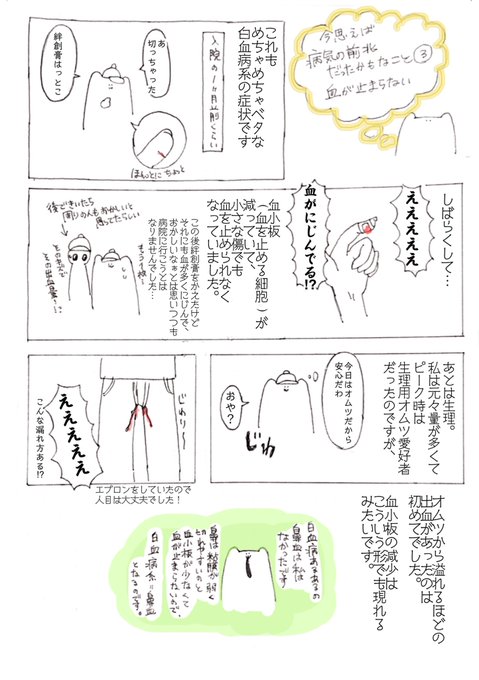 今思えば
病気の前兆
だったかもなこと③
血が止まらない
これも
めちゃめちゃベタな
白血病系の症状です
入院の1ヶ月前ぐらい
あ
切っちゃった
絆創膏はっとこ
ほんとにちょっと
しばらくして…
えええええ
血がにじんでる!?
血小板
（血を止める細胞）が
減っていて、
小さな傷でも
血を止められなく
なっていました。
この後絆創膏をかえたけど
それにも血が多くにじんで、
おかしいなぁとは思いつつも
病院に行こうとは
なりませんでした…
後できいたら
周りの人もおかしいと
思ってたらしい
もう1枚〜
そのキズで
その出血量…!?
あとは生理。
私は元々量が多くて
ピーク時は
生理用オムツ愛好者
だったのですが、
今日はオムツだから
安心だわ
おや？
じわ
じわり〜
えええええ
こんな漏れ方ある!?
エプロンをしていたので
人目は大丈夫でした！
オムツから溢れるほどの
出血があったのは
初めてでした。
血小板の減少は
こういう形でも現れる
みたいです。
白血病あるあるの
鼻血は私は
なかったです
鼻は粘膜が弱く
切れやすいのと
血小板が少なくて
血が止まらないので、
白血病系＝鼻血
となるのです。